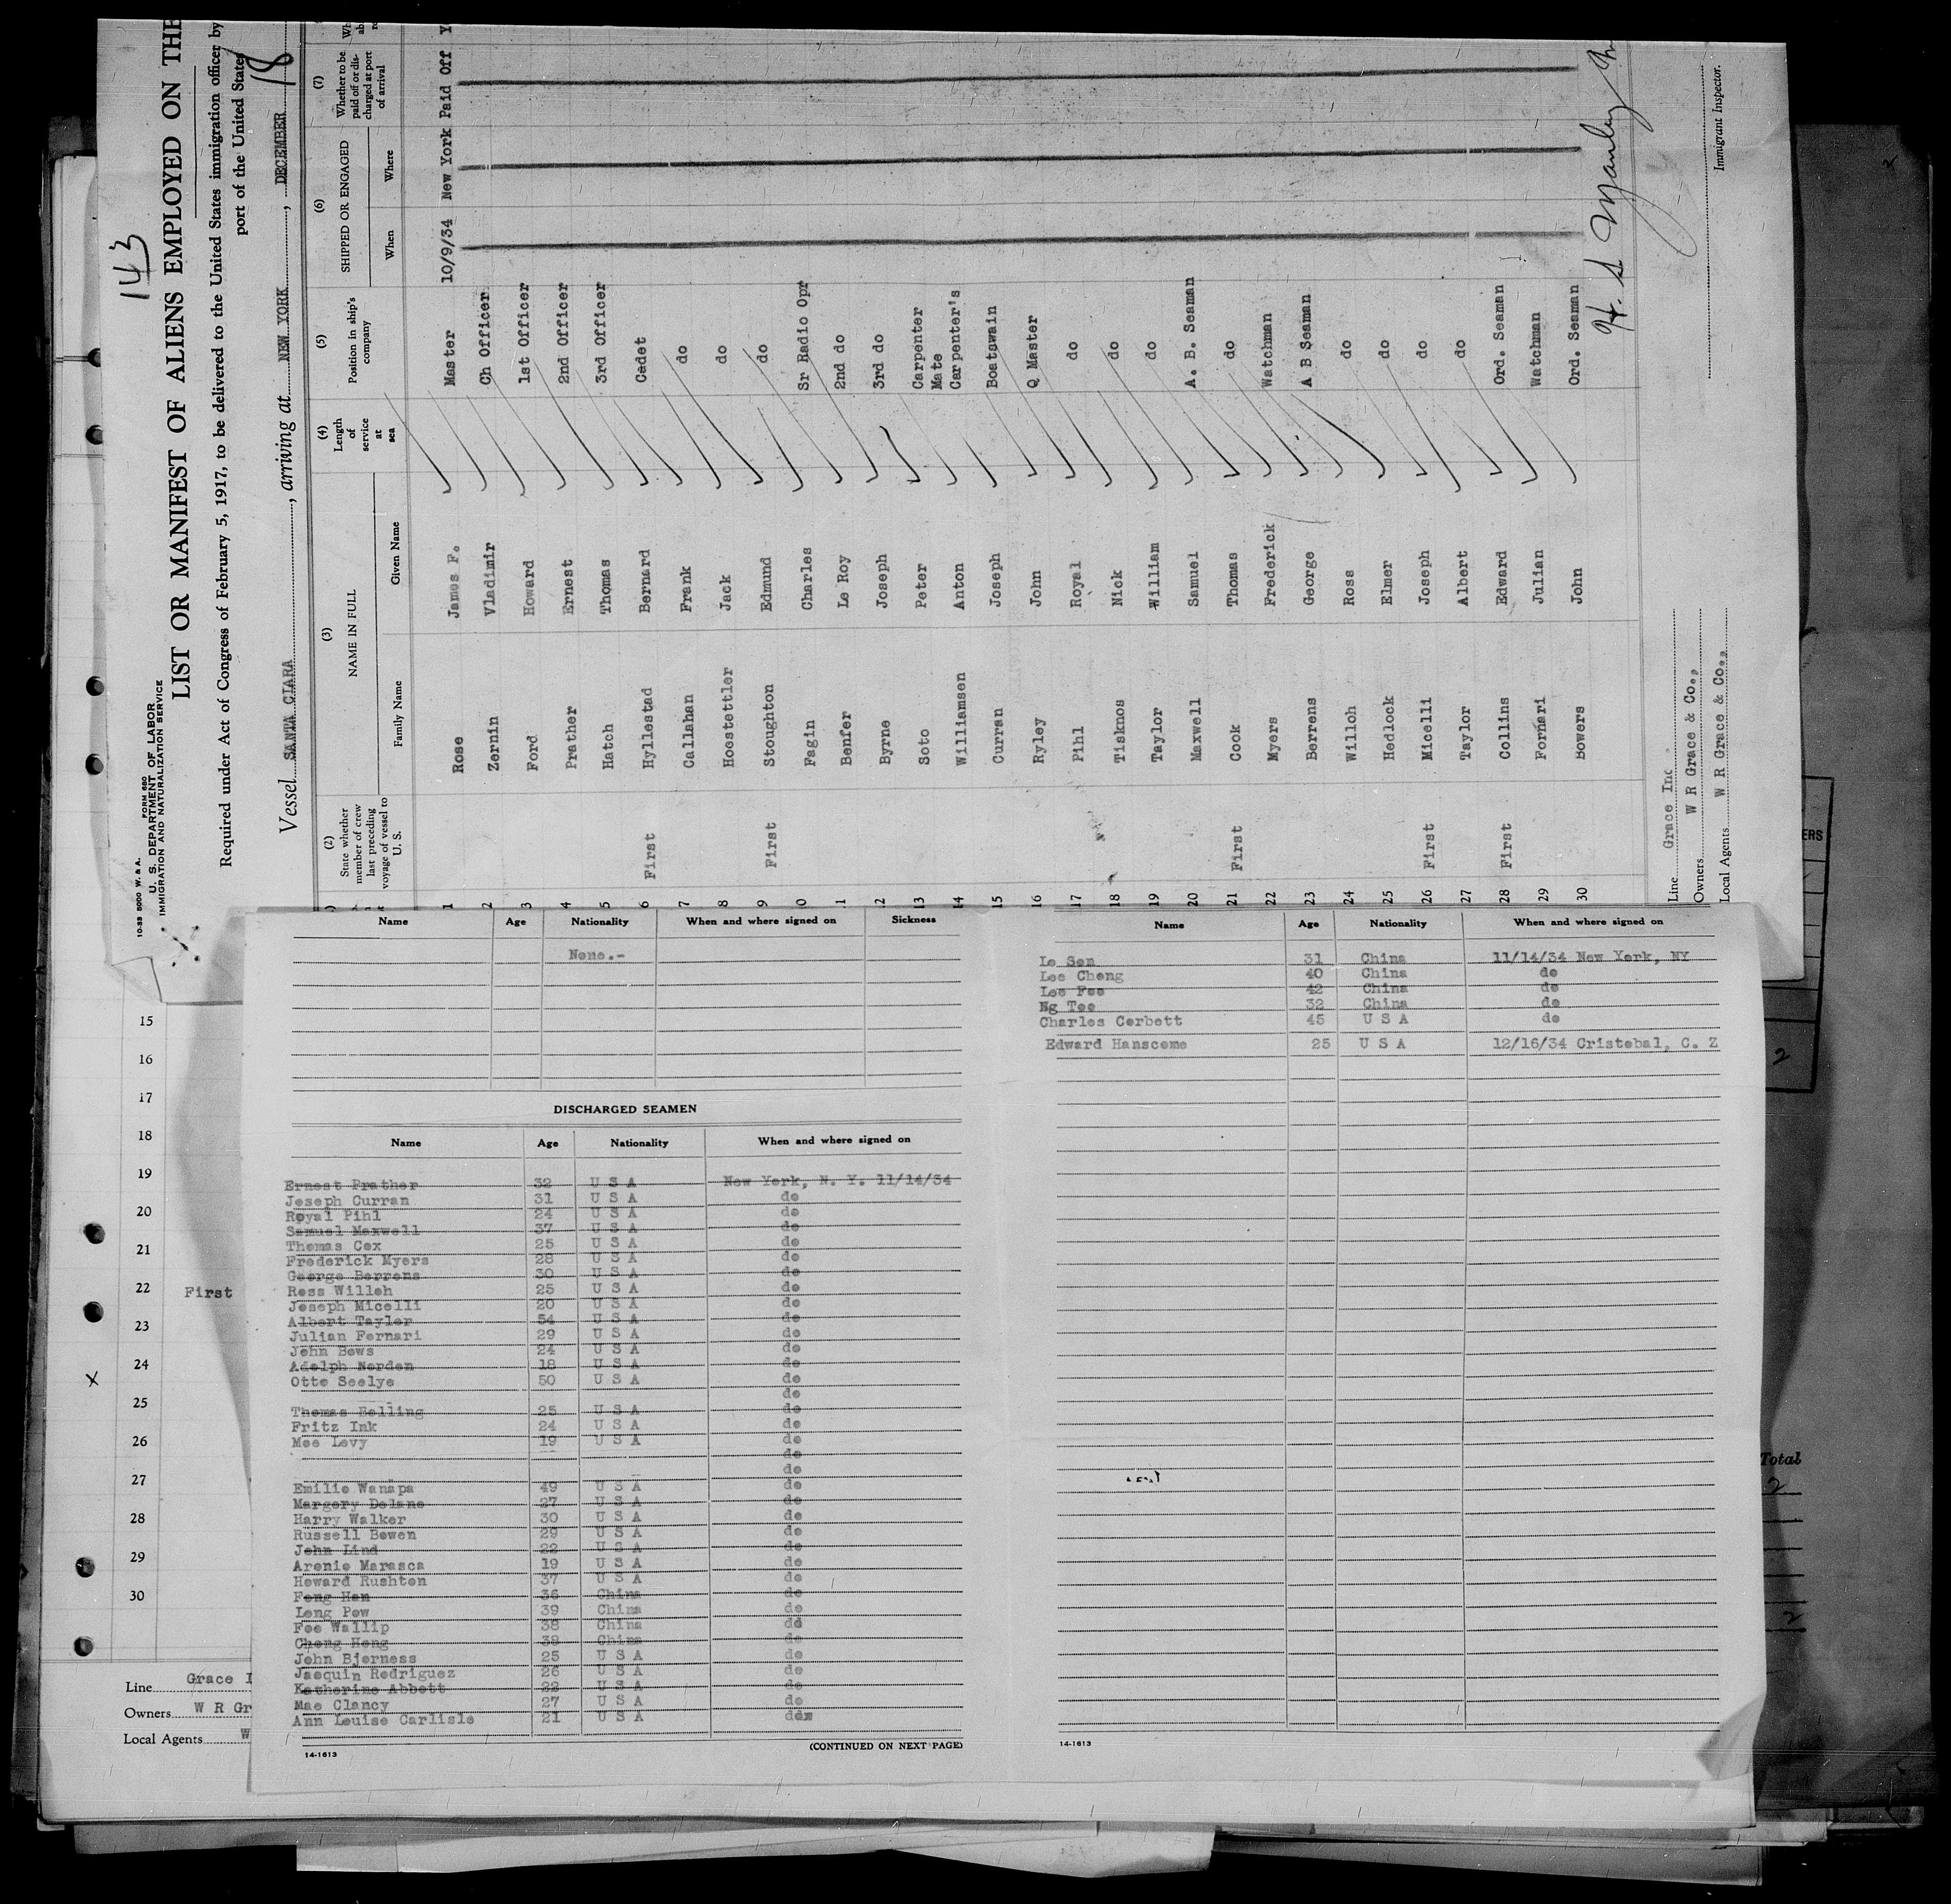 143
10-33 5000 W. & A. FORM 680
U. S. DEPARTMENT OF LABOR
IMMIGRATION AND NATURALIZATION SERVICE
LIST OR MANIFEST OF ALIENS EMPLOYED ON THE
Required under Act of Congress of February 5, 1917, to be delivered to the United States immigration officer by
port of the United States
Vessel SANTA CLARA, arriving at NEW YORK, DECEMBER 18
(2) State whether member of crew last preceding voyage of vessel to U. S.
(3) NAME IN FULL Family Name Given Name
(4) Length of service at sea
(5) Position in ship's company
(6) SHIPPED OR ENGAGED When Where
(7) Whether to be paid off or discharged at port of arrival
1 Rose James F. Master 10/9/34 New York Paid Off
2 Zernin Vladimir Ch Officer
3 Ford Howard 1st Officer
4 Prather Ernest 2nd Officer
5 Hatch Thomas 3rd Officer
6 First Hyllestad Bernard Cadet
7 Callahan Frank do
8 Hoostettler Jack do
9 First Stoughton Edmund do
0 Fagin Charles Sr Radio Opr
1 Benfer Le Roy 2nd do
2 Byrne Joseph 3rd do
13 Soto Peter Carpenter
14 Williamsen Anton Mate Carpenter's
15 Curran Joseph Boatswain
16 Ryley John Q Master
17 Pihl Royal do
18 Tisknos Nick do
19 Taylor William do
20 Maxwell Samuel A. B. Seaman
21 First Cook Thomas do
22 Myers Frederick Watchman
23 Berrens George A B Seaman
24 Willoh Ross do
25 Hedlock Elmer do
26 First Micelli Joseph do
27 Taylor Albert do
28 First Collins Edward Ord. Seaman
29 Fornari Julian Watchman
30 Bowers John Ord. Seaman
Line Grace Inc
Owners W R Grace & Co.,
Local Agents W R Grace & Co.,
H. S Manley
Immigrant Inspector.
Name Age Nationality When and where signed on Sickness
None.-
DISCHARGED SEAMEN
Name Age Nationality When and where signed on
Ernest Prather 32 U S A New York, N. Y. 11/14/34
Joseph Curran 31 U S A do
Royal Pihl 24 U S A do
Samuel Maxwell 37 U S A do
Thomas Cox 25 U S A do
Frederick Myers 28 U S A do
George Berrens 30 U S A do
Ross Willoh 25 U S A do
Joseph Micelli 20 U S A do
Albert Taylor 54 U S A do
Julian Fornari 29 U S A do
John Bows 24 U S A do
Adolph Norden 18 U S A do
Otto Seelye 50 U S A do
do
Thomas Bolling 25 U S A do
Fritz Ink 24 U S A do
Moe Levy 19 U S A do
do
do
Emilio Wanapa 49 U S A do
Margery Delano 27 U S A do
Harry Walker 30 U S A do
Russell Bowen 29 U S A do
John Lind 22 U S A do
Arenio Marasca 19 U S A do
Howard Rushton 37 U S A do
Fong Han 36 China do
Long Pow 39 China do
Foo Wallip 38 China dd
Chong Hong 38 China do
John Bjorness 25 U S A do
Jaoquin Rodriguez 26 U S A do
Katherine Abbott 22 U S A do
Mae Clancy 27 U S A do
Ann Louise Carlisle 21 U S A do
14-1613
(CONTINUED ON NEXT PAGE)
Name Age Nationality When and where signed on
Lo Son 31 China 11/14/34 New York, NY
Lee Chong 40 China do
Lee Foo 42 China do
Ng Tee 32 China do
Charles Corbett 45 U S A do
Edward Hanscome 25 U S A 12/16/34 Cristobal, C. Z
14-1613
15
16
17
18
19
20
21
22 First
23
24
25
26
27
28
29
30
Line Grace I
Owners W R Gr
Local Agents W
ERS
2
Total
2
2